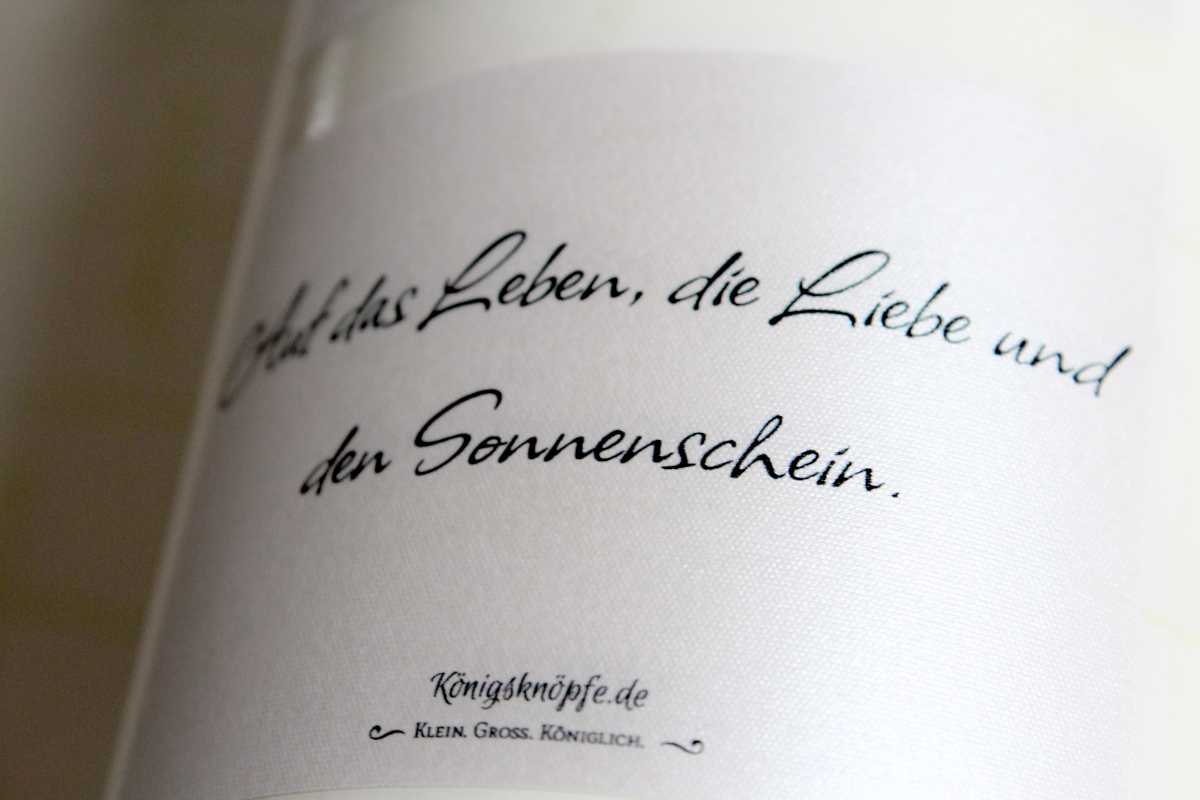 Auf das Leben, die Liebe und
den Sonnenschein.
Königsknöpfe.de
KLEIN. GROSS. KÖNIGLICH.